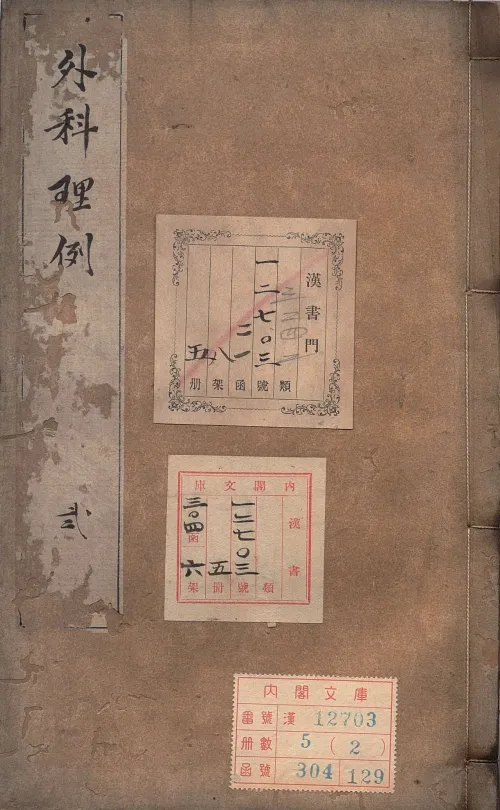 外科理例
弐
漢書門
一二七〇三
二一
八
五
類 號 函 架 册
内閣文庫
漢書
一二七〇三
五
三〇四
函
六
類 號 册 架
内閣文庫
番號 漢 12703
册數 5 ( 2 )
函號 304 129